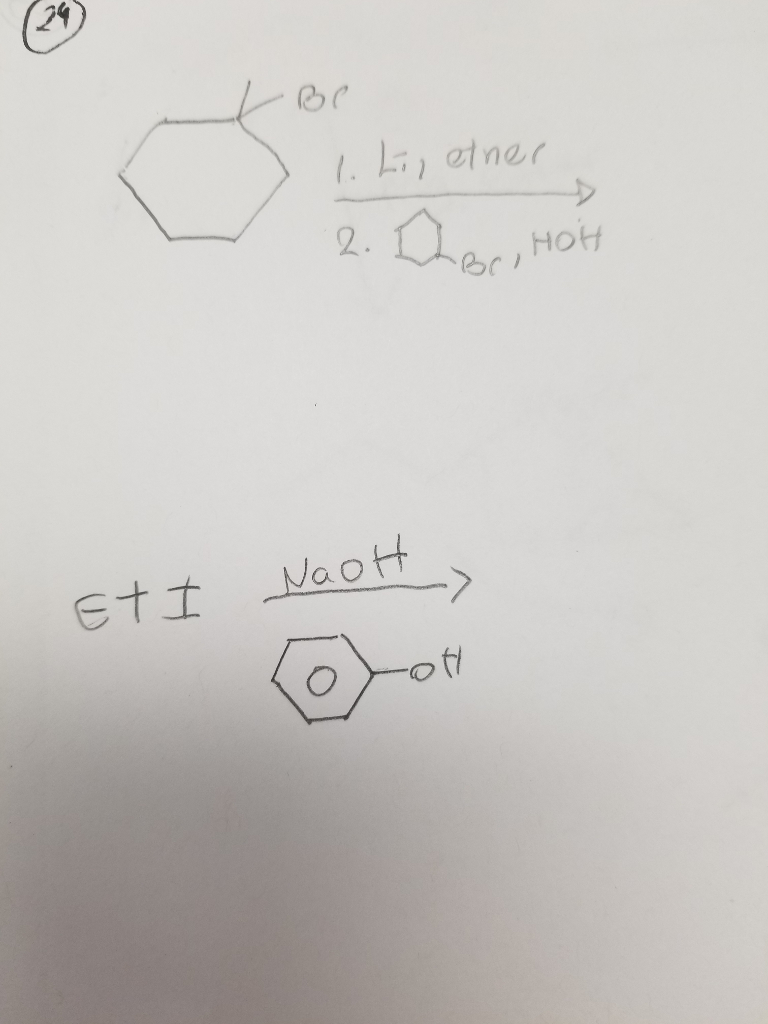 24
Br
1. Li, ether
2. Br, HOH
NaOH
EtI
OH